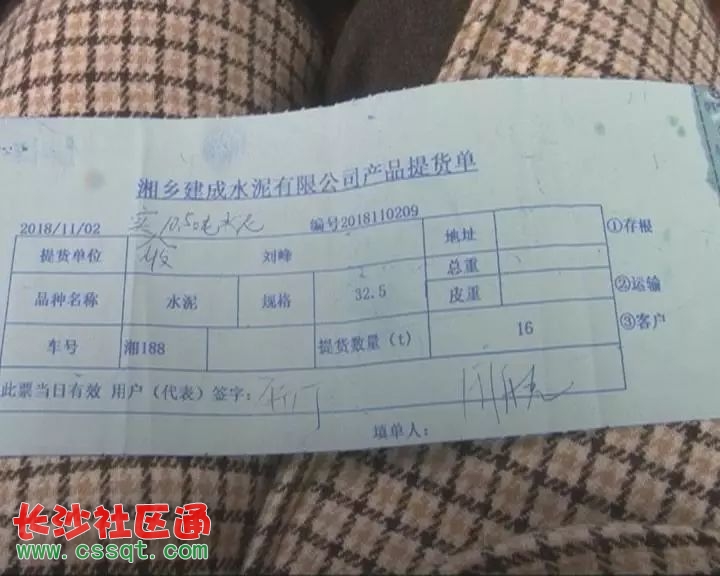 湘乡建成水泥有限公司产品提货单
2018/11/02 实 10.5吨水泥 编号2018110209
提货单位 刘峰 地址
①存根
品种名称 水泥 规格 32.5 总重
皮重
②运输
车号 湘188 提货数量(t) 16
③客户
此票当日有效 用户(代表)签字:
填单人:
长沙社区通
www.cssqt.com